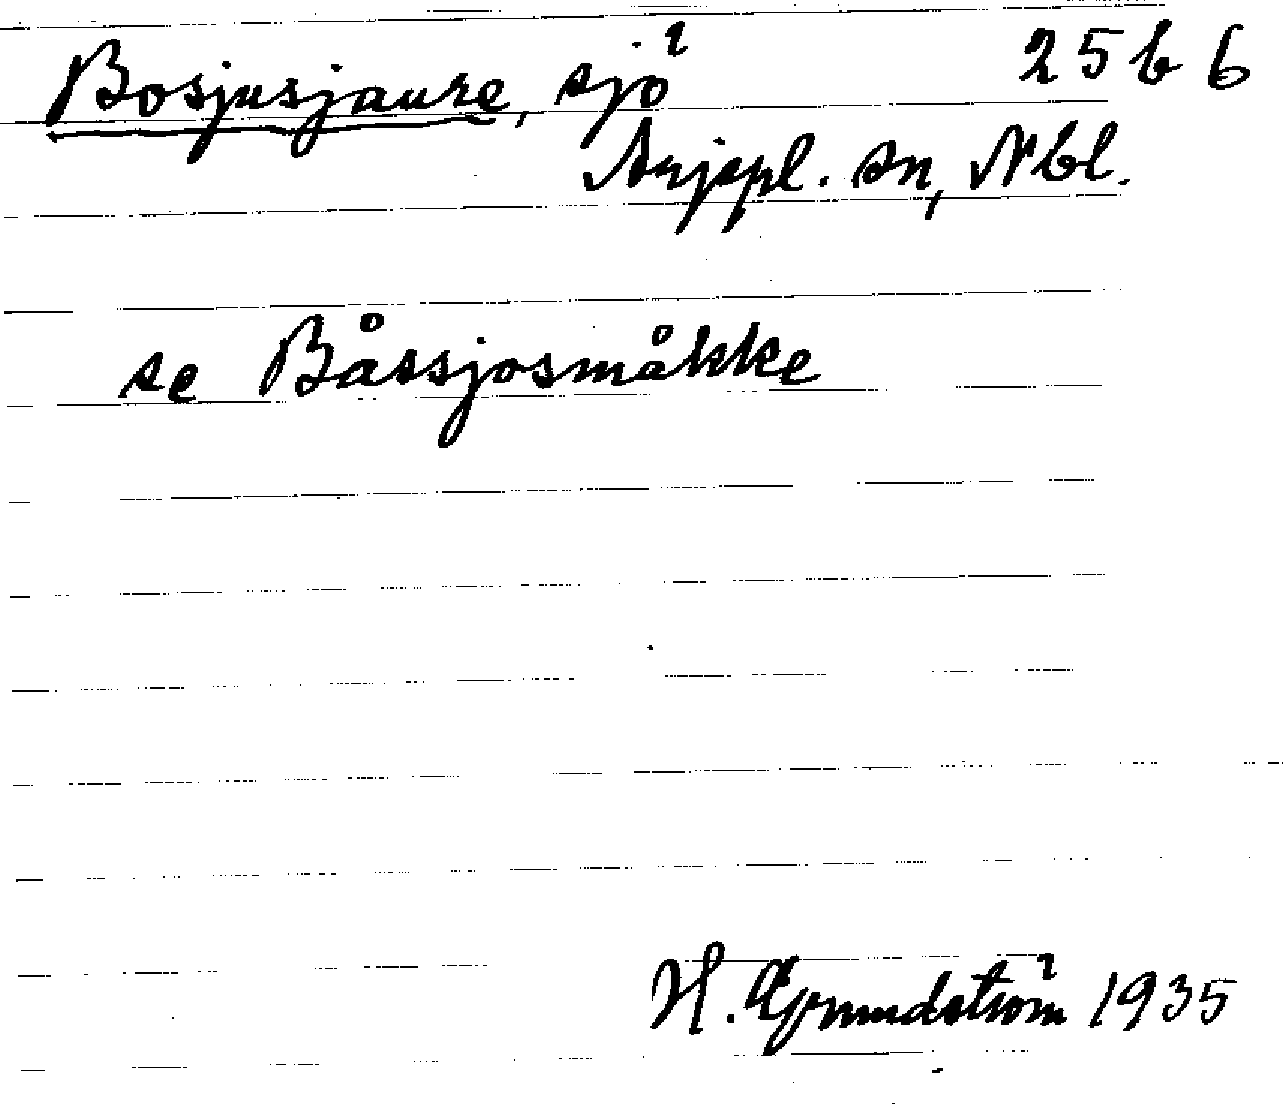 Bosjusjaure, sjö 25 b 6
Arjepl. sn, Nbl.
se Båssjosmåkke
H. Grundström 1935